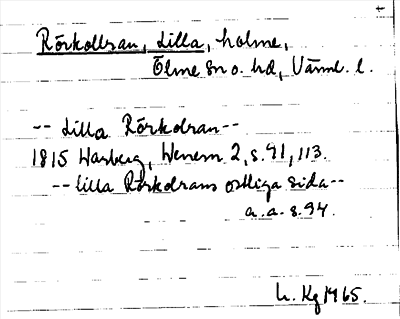 Rörkollran, Lilla, holme,
Ölme sn o. hd, Värml. l.
-- Lilla Rörkdran --
1815 Warberg, Wenern 2, s. 91, 113.
-- lilla Rörkdrans ostliga sida --
a.a. s. 94.
L. Kg 1965.